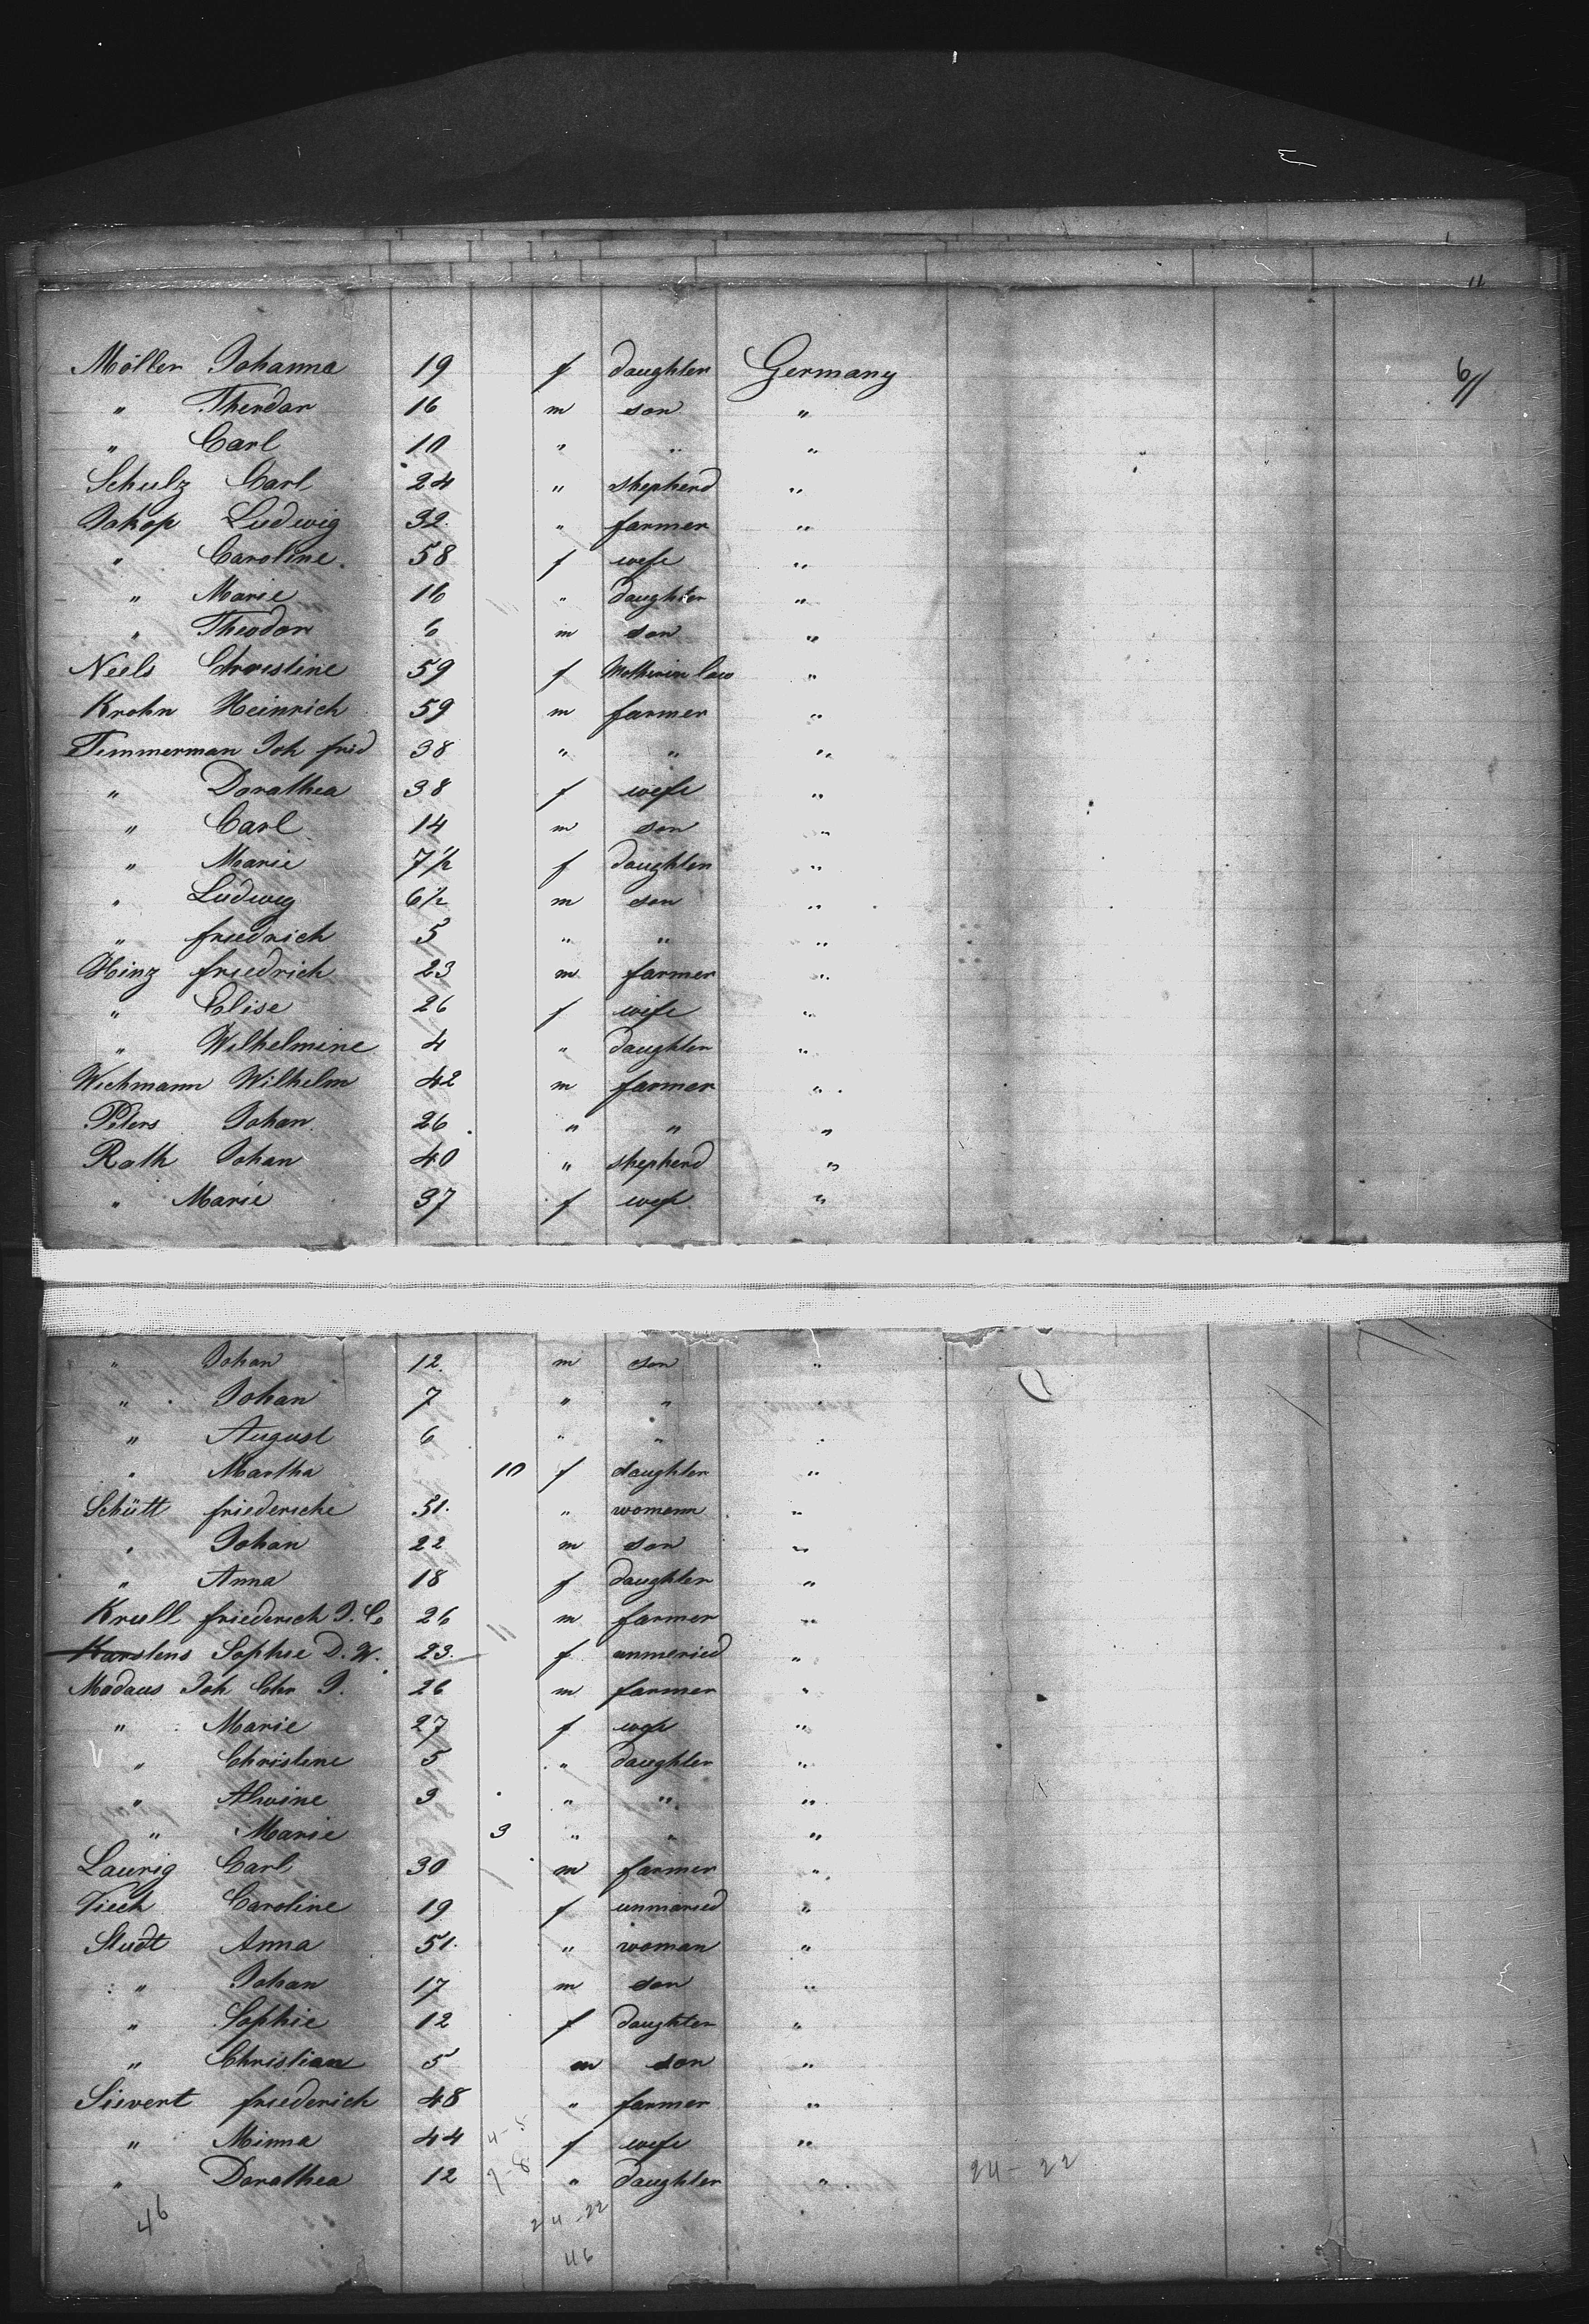 11
6/11
Möller Johanna 19 f daughter Germany
" Theodar 16 m son "
" Carl 10 " " "
Schulz Carl 24 " shepherd "
Jakop Ludwig 32 " farmer "
" Caroline 58 f wife "
" Marie 16 " daughter "
" Theodor 6 m son "
Neels Christine 59 f Motherin law "
Krohn Heinrich 59 m farmer "
Timmerman Joh frid 38 " " "
" Dorathea 38 f wife "
" Carl 14 m son "
" Marie 7 1/2 f daughter "
" Ludwig 6 1/2 m son "
" friedrich 5 " " "
Hinz friedrich 23 m farmer "
" Elise 26 f wife "
" Wilhelmine 4 " daughter "
Wichmann Wilhelm 42 m farmer "
Peters Johan 26 " " "
Rath Johan 40 " shepherd "
" Marie 37 f wife "
" Johan 12 m son "
" Johan 7 " " "
" August 6 " " "
" Martha 10 f daughter "
Schütt friederiche 51 " womenn "
" Johan 22 m son "
" Anna 18 f daughter "
Krull friederich J. C 26 m farmer "
Karstens Sophie D. W. 23 f unmeried "
Madaus Joh Chr J. 26 m farmer "
" Marie 27 f wife "
" Christine 5 " daughter "
" Alwine 3 " " "
" Marie 3 " " "
Laurig Carl 30 m farmer "
Tiech Caroline 19 f unmaried "
Studt Anna 51 " woman "
" Johan 17 m son "
" Sophie 12 f daughter "
" Christian 5 m son "
Sievert friederich 48 " farmer "
" Minna 44 4-5 f wife "
" Dorathea 12 7-8 " daughter " 24-22
46 24-22
46